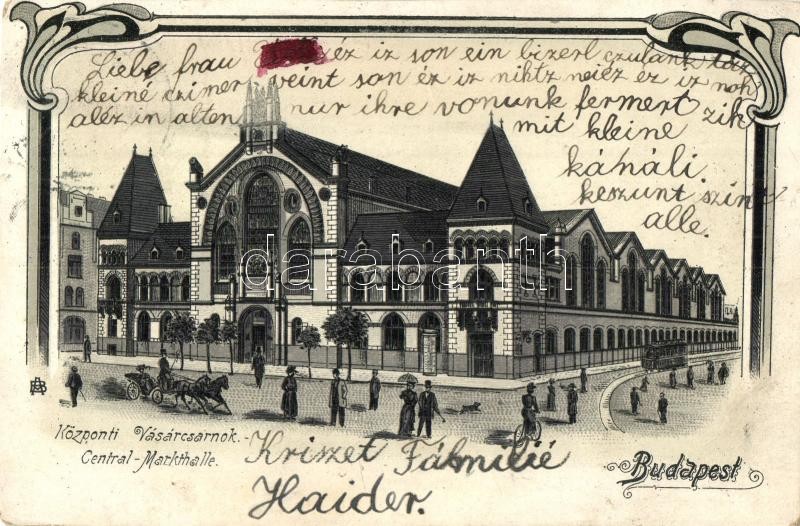 Liebe frau éz iz son ein bizerl czufank táz
kleine czimer veint son éz iz nihtz neiéz ez iz noh
aléz in alten nur ihre vonunk fermert zik
mit kleine
káháli.
keszunt szint
alle.
darabanth
AB
Központi Vásárcsarnok.
Central-Markthalle.
Kriszet Fámilié
Haider.
Budapest